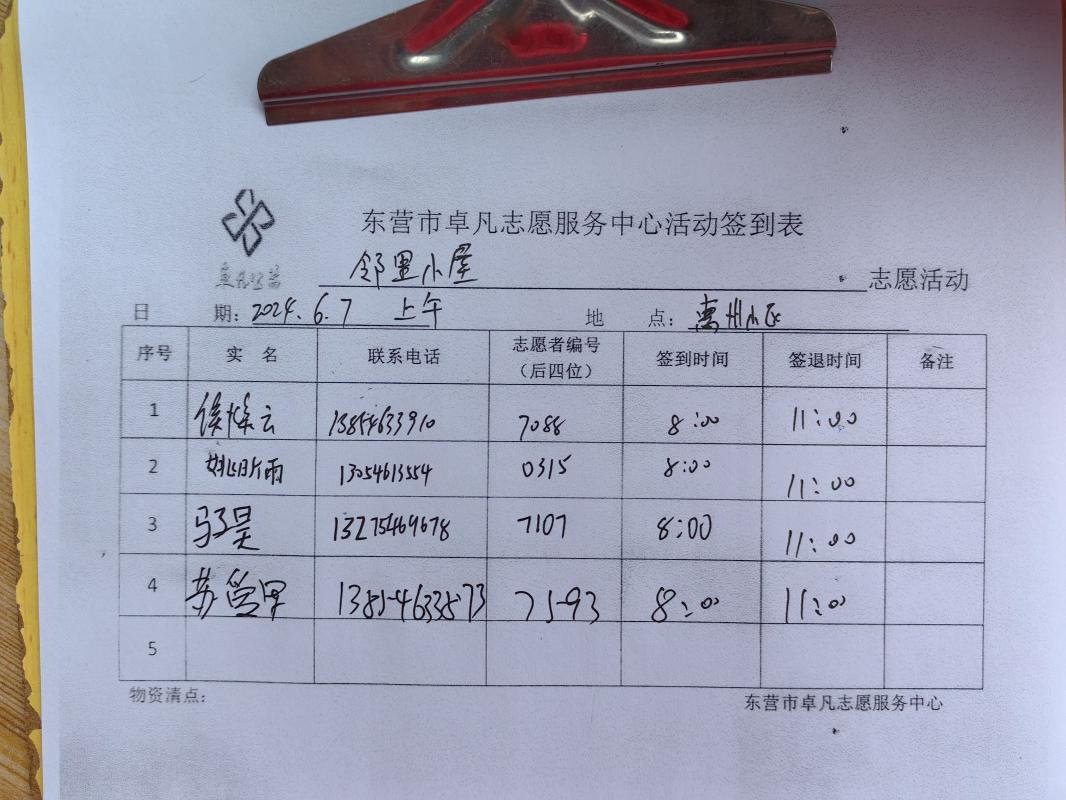 东营市卓凡志愿服务中心活动签到表
邻里小屋 志愿活动
日 期: 2024.6.7 上午 地 点: 惠州小区
序号 实 名 联系电话 志愿者编号(后四位) 签到时间 签退时间 备注
1 13854633910 7088 8:00 11:00
2 姚昕雨 13054613554 0315 8:00 11:00
3 马子昊 13275469678 7107 8:00 11:00
4 苏 13854633573 7593 8:00 11:00
5
物资清点:
东营市卓凡志愿服务中心